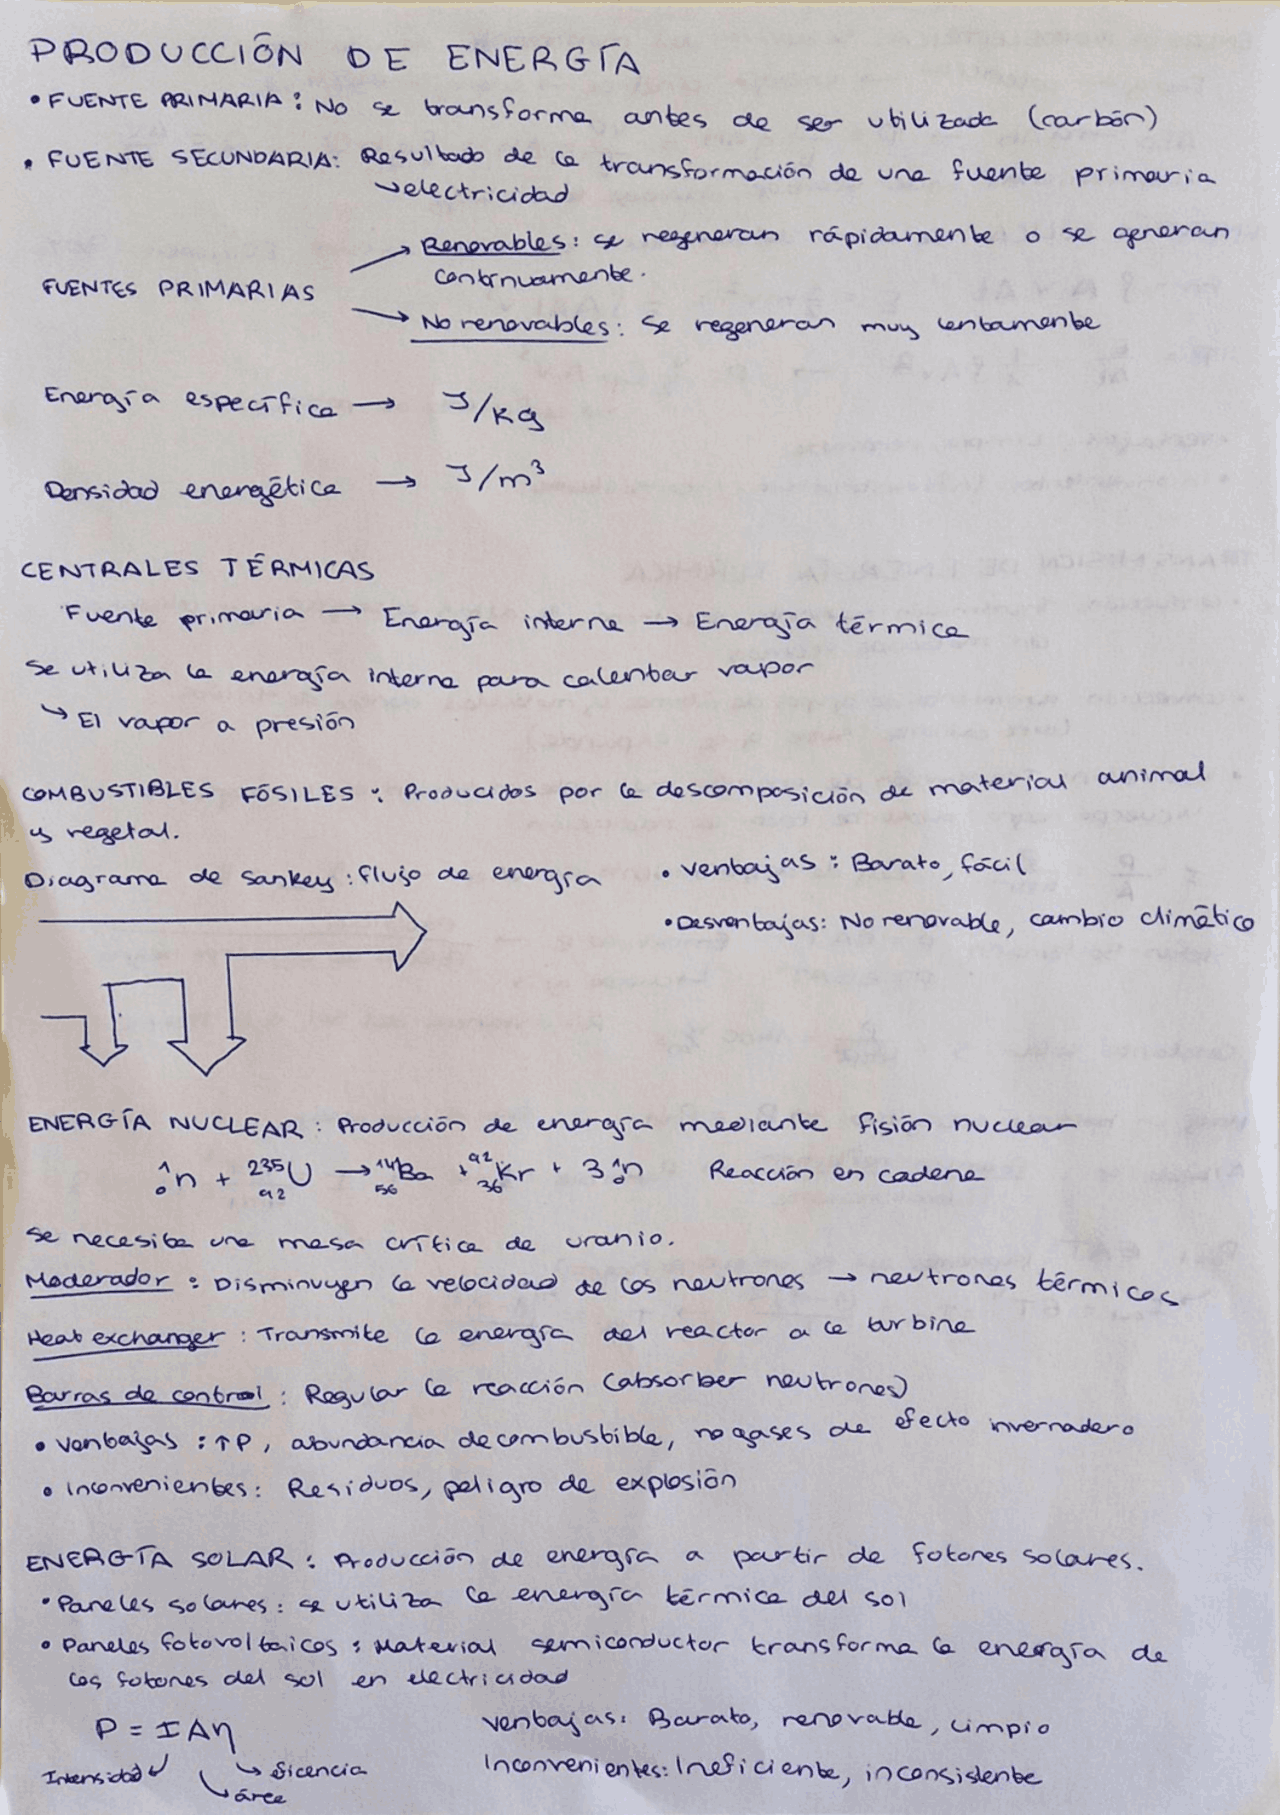 PRODUCCIÓN DE ENERGÍA
• FUENTE PRIMARIA: No se transforma antes de ser utilizada (carbón)
• FUENTE SECUNDARIA: Resultado de la transformación de una fuente primaria
↳ electricidad
→ Renovables: se regeneran rápidamente o se generan
continuamente.
FUENTES PRIMARIAS
→ No renovables: Se regeneran muy lentamente
Energía específica → J/kg
Densidad energética → J/m³
CENTRALES TÉRMICAS
Fuente primaria → Energía interna → Energía térmica
Se utiliza la energía interna para calentar vapor
↳ El vapor a presión
COMBUSTIBLES FÓSILES: Producidos por la descomposición de material animal
y vegetal.
Diagrama de Sankey: flujo de energía
• Ventajas: Barato, fácil
• Desventajas: No renovable, cambio climático
ENERGÍA NUCLEAR: Producción de energía mediante fisión nuclear
¹₀n + ²³⁵₉₂U → ¹⁴¹₅₆Ba + ⁹²₃₆Kr + 3 ¹₀n Reacción en cadena
Se necesita una masa crítica de uranio.
Moderador: Disminuyen la velocidad de los neutrones → neutrones térmicos
Heat exchanger: Transmite la energía del reactor a la turbina
Barras de control: Regular la reacción (absorber neutrones)
• Ventajas: ↑P, abundancia de combustible, no gases de efecto invernadero
• Inconvenientes: Residuos, peligro de explosión
ENERGÍA SOLAR: Producción de energía a partir de fotones solares.
• Paneles solares: se utiliza la energía térmica del sol
• Paneles fotovoltaicos: Material semiconductor transforma la energía de
los fotones del sol en electricidad
P = IAη
Intensidad ↳ área ↳ eficencia
Ventajas: Barato, renovable, limpio
Inconvenientes: Ineficiente, inconsistente